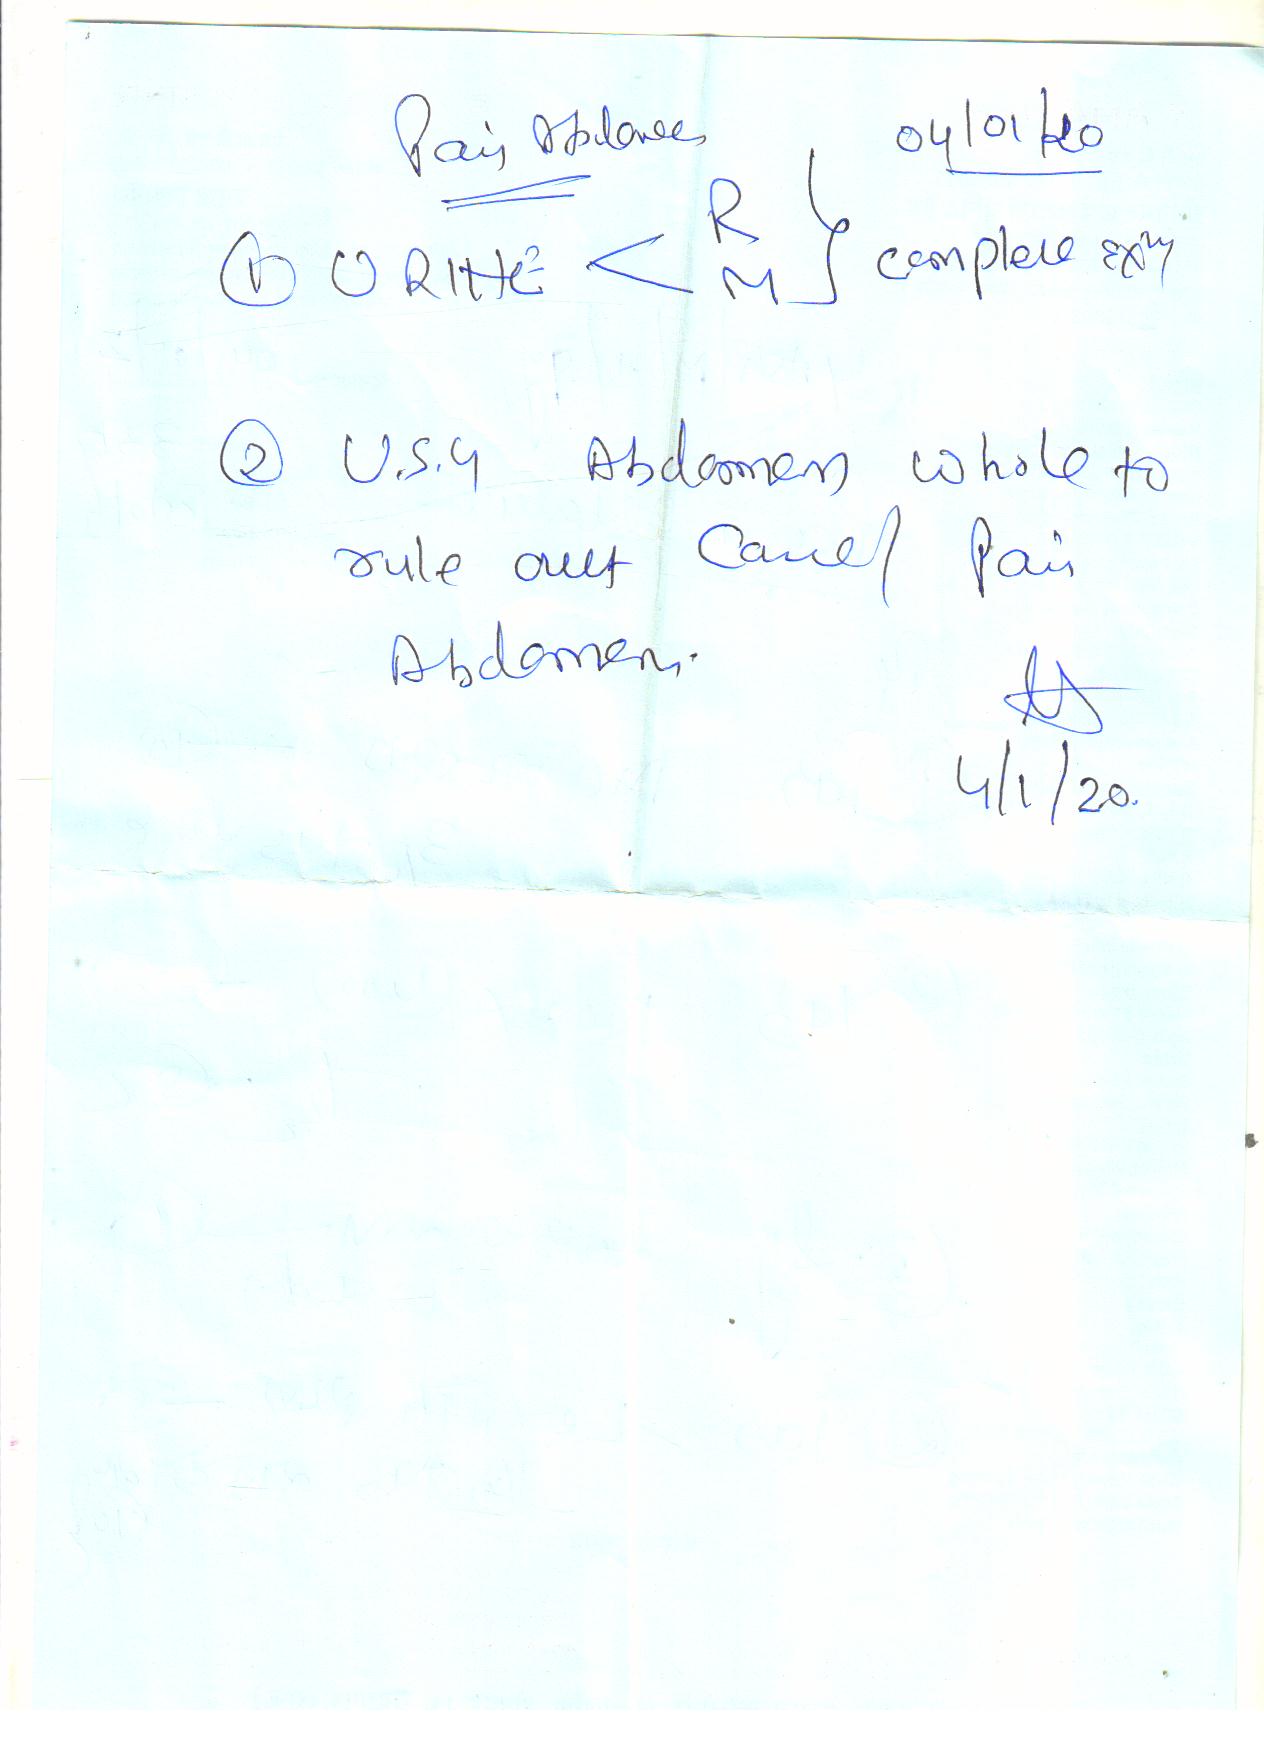 Pain Abdomen 04/01/20
① URINE < R M } complete exn
② U.S.G Abdomen whole to
rule out Cause/ Pain
Abdomen.
4/1/20.